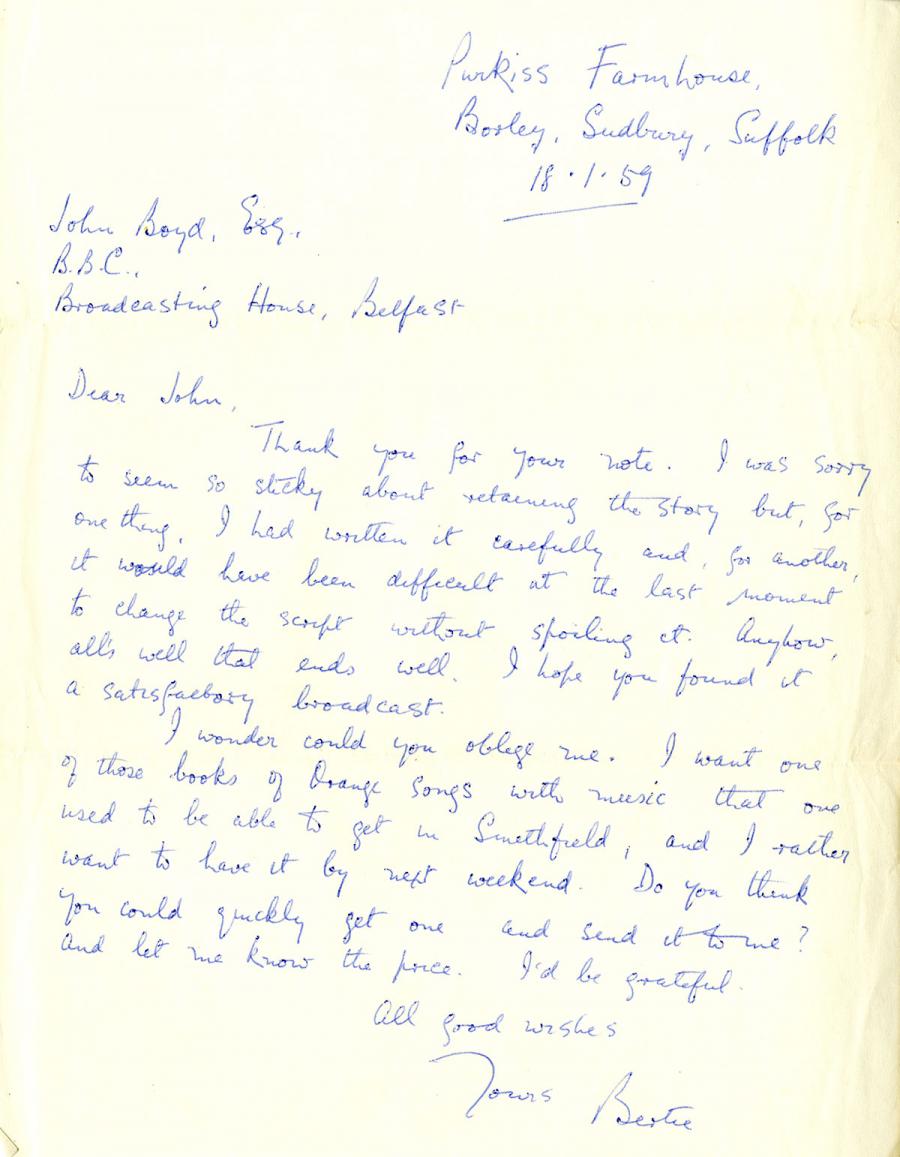 Purkiss Farmhouse,
Borley, Sudbury, Suffolk
18.1.59
John Boyd, Esq.,
B.B.C.,
Broadcasting House, Belfast
Dear John,
Thank you for your note. I was sorry
to seem so sticky about retaining the story but, for
one thing, I had written it carefully and, for another,
it would have been difficult at the last moment
to change the script without spoiling it. Anyhow,
all's well that ends well. I hope you found it
a satisfactory broadcast.
I wonder could you oblige me. I want one
of those books of Orange songs with music that one
used to be able to get in Smithfield, and I rather
want to have it by next weekend. Do you think
you could quickly get one and send it to me?
And let me know the price. I'd be grateful.
All good wishes
Yours Bertie